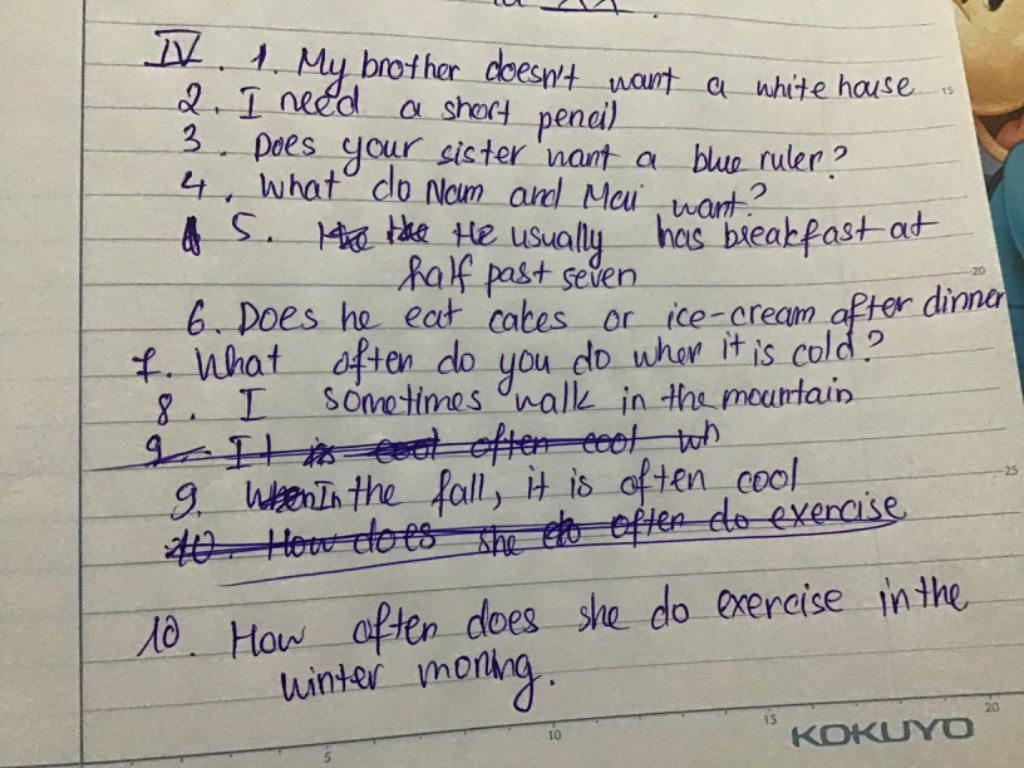 IV. 1. My brother doesn't want a white house
2. I need a short pencil
3. Does your sister want a blue ruler?
4. What do Nam and Mai want?
5. He usually has breakfast at
half past seven
6. Does he eat cakes or ice-cream after dinner
7. What often do you do when it is cold?
8. I sometimes walk in the mountain
9. It is cool often cool wh
9. When In the fall, it is often cool
10. How does she do often do exercise
10. How often does she do exercise in the
winter moning.
15
20
25
5
10
15
20
KOKUYO